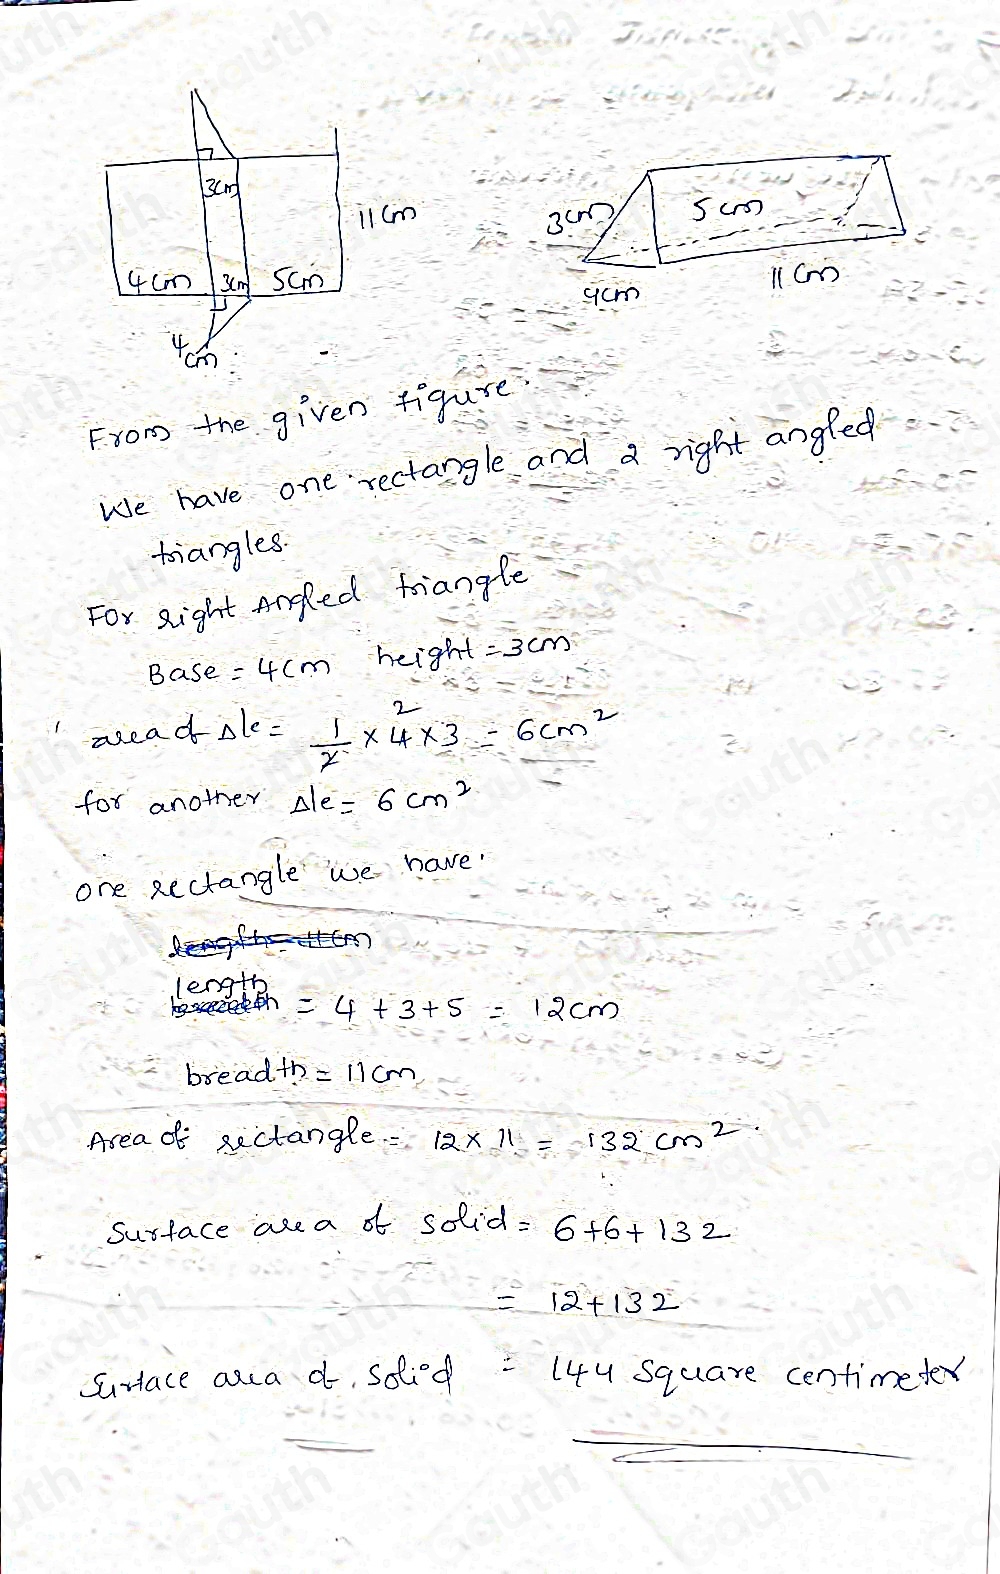 3cm
11cm
4cm 3cm 5cm
4
cm
3cm 5cm
9cm 11cm
From the given figure.
We have one rectangle and 2 right angled
triangles.
For right Angled triangle
Base = 4cm height = 3cm
area of Δle = 1/2 × 4 × 3 = 6cm²
2
for another Δle = 6cm²
one rectangle we have.
length = 11cm
length
breadth = 4 + 3 + 5 = 12cm
breadth = 11cm
Area of rectangle = 12 × 11 = 132 cm².
Surface area of solid = 6+6+132
= 12+132
Surface area of solid = 144 square centimeter
Gauth